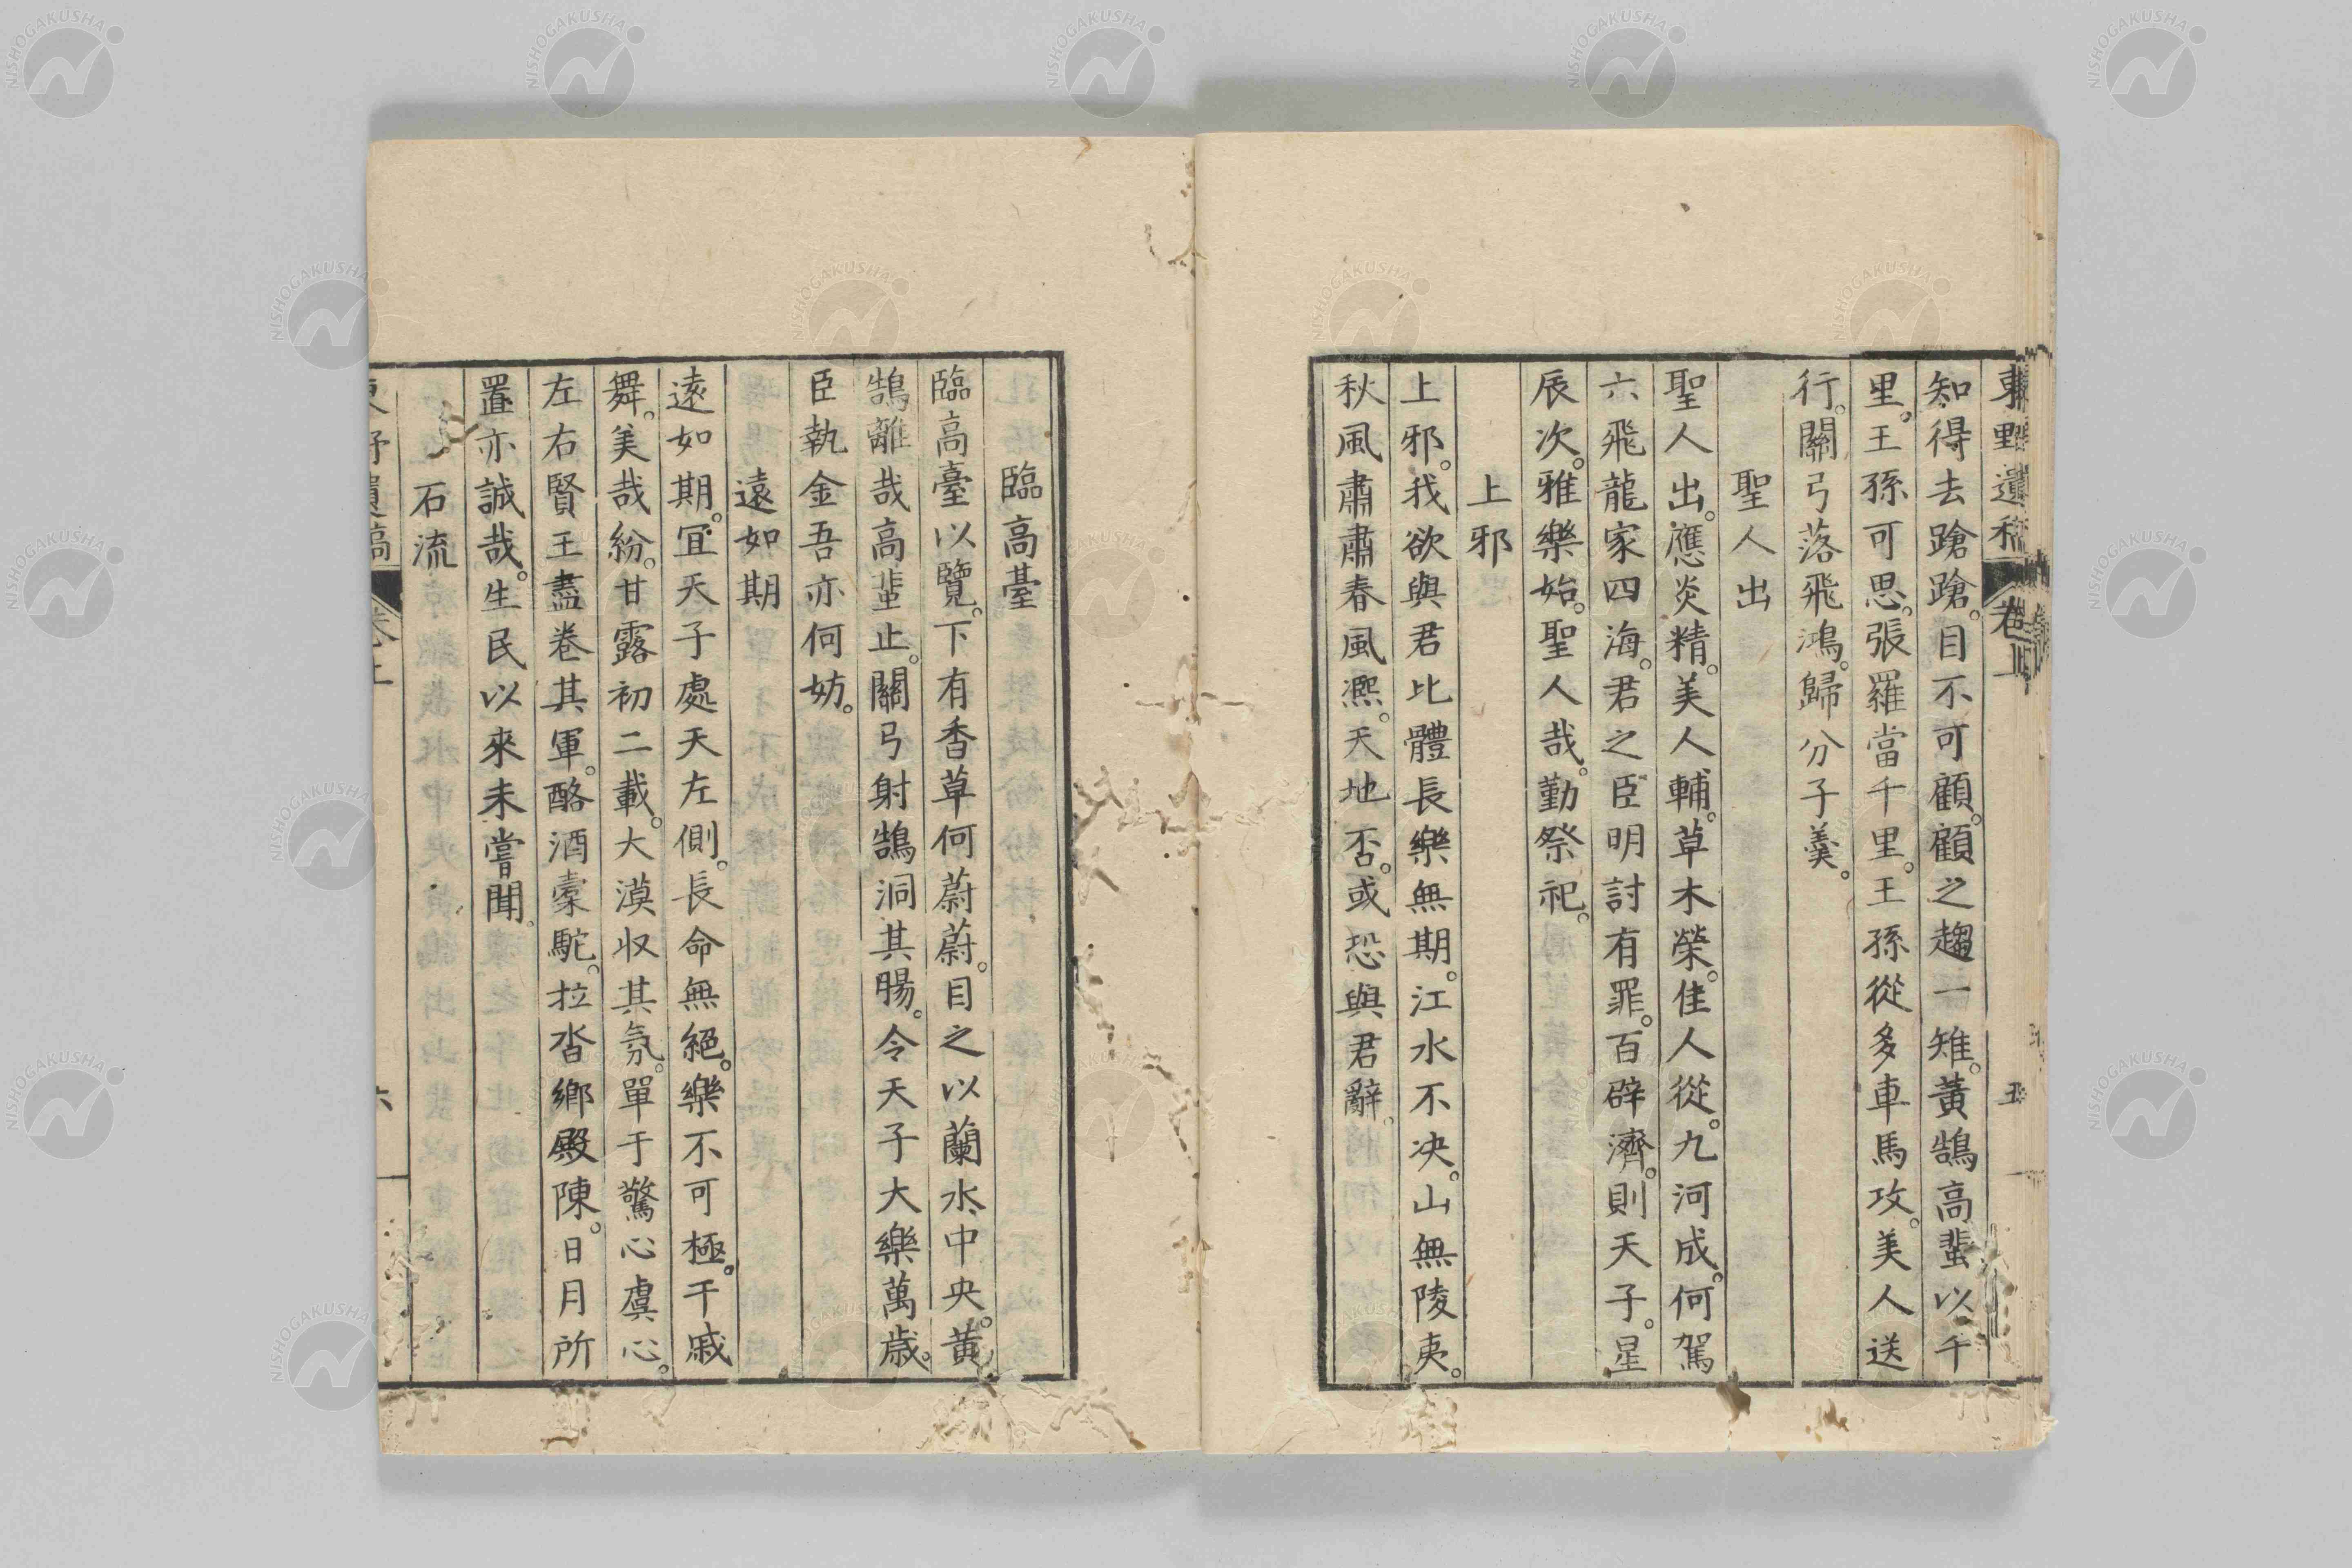 東野遺稿 卷上 五
知得去蹌蹌。目不可顧。顧之趨一雉。黃鵠高蜚以千
里。王孫可思。張羅當千里。王孫從多車馬攻。美人送
行。關弓落飛鴻。歸分子羹。
聖人出
聖人出。應炎精。美人輔。草木榮。佳人從。九河成。何駕
六飛龍家四海。君之臣明討有罪。百辟濟。則天子。星
辰次。雅樂始。聖人哉。勤祭祀。
上邪
上邪。我欲與君比體長樂無期。江水不决。山無陵夷。
秋風肅肅春風凞。天地否。或恐與君辭。
臨高臺
臨高臺以覽。下有香草何蔚蔚。目之以蘭水中央。黃
鵠離哉高蜚止。關弓射鵠洞其腸。令天子大樂萬歲。
臣執金吾亦何妨。
遠如期
遠如期。宜天子處天左側。長命無絕。樂不可極。干戚
舞。美哉紛。甘露初二載。大漠収其氛。單于驚心虞心。
左右賢王盡卷其軍。酪酒橐駝。拉沓鄉殿陳。日月所
置亦誠哉。生民以來未嘗聞。
石流
東野遺稿 卷上 六
NISHOGAKUSHA